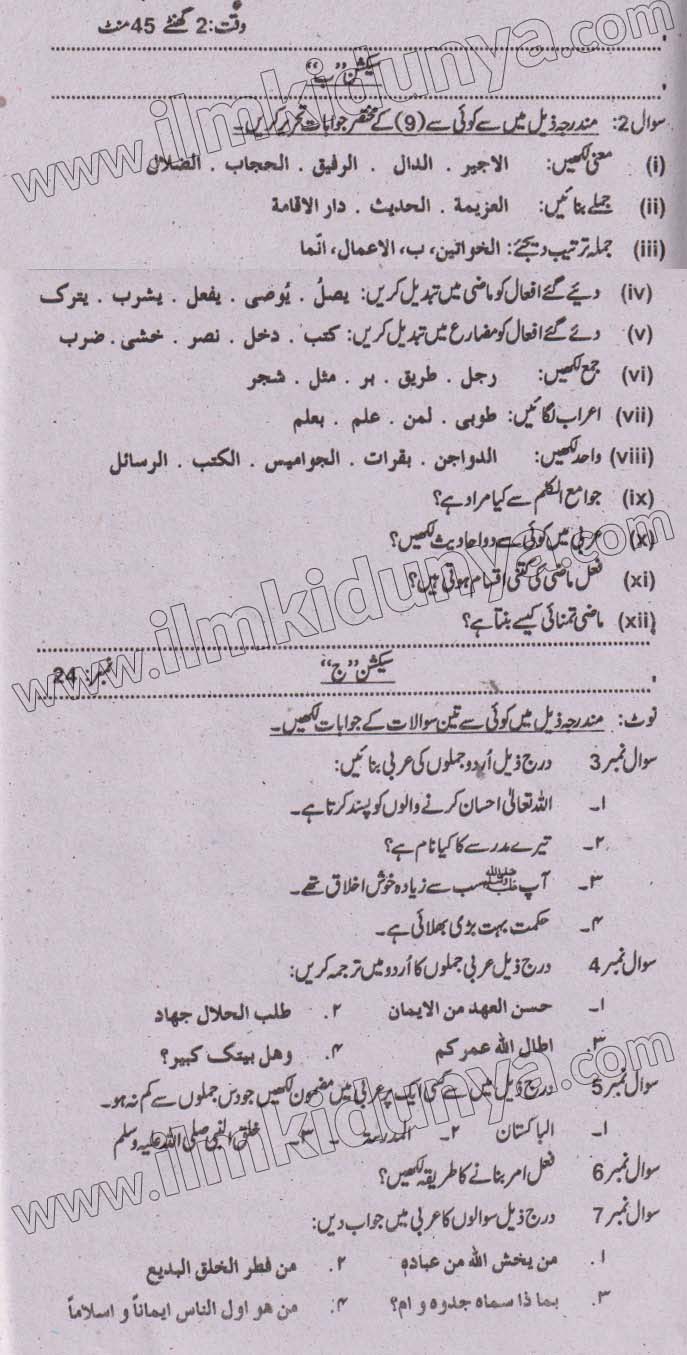 وقت: 2 گھنٹے 45 منٹ
سیکشن ”ب“
سوال 2: مندرجہ ذیل میں سے کوئی سے (9) کے مختصر جوابات تحریر کریں۔
(i) معنی لکھیں: الاجیر . الدال . الرفیق . الحجاب . الضلال
(ii) جملے بنائیں: العزیمة . الحدیث . دار الاقامة
(iii) جملہ ترتیب دیجئے: الخواتین، ب، الاعمال، انّما
(iv) دیئے گئے افعال کو ماضی میں تبدیل کریں: یصلُ . یُوصی . یفعل . یشرب . یترک
(v) دئے گئے افعال کو مضارع میں تبدیل کریں: کتب . دخل . نصر . خشی . ضرب
(vi) جمع لکھیں: رجل . طریق . بر . مثل . شجر
(vii) اعراب لگائیں: طوبی . لمن . علم . بعلم
(viii) واحد لکھیں: الدواجن . بقرات . الجوامیس . الکتب . الرسائل
(ix) جوامع الکلم سے کیا مراد ہے؟
(x) عربی میں کوئی سے دو احادیث لکھیں؟
(xi) فعل ماضی کی کتنی اقسام ہوتی ہیں؟
(xii) ماضی تمنائی کیسے بنتا ہے؟
سیکشن ”ج“ نمبر: 24
نوٹ: مندرجہ ذیل میں کوئی سے تین سوالات کے جوابات لکھیں۔
سوال نمبر 3 درج ذیل اُردو جملوں کی عربی بنائیں:
۱۔ اللہ تعالیٰ احسان کرنے والوں کو پسند کرتا ہے۔
۲۔ تیرے مدرسے کا کیا نام ہے؟
۳۔ آپ ﷺ سب سے زیادہ خوش اخلاق تھے۔
۴۔ حکمت بہت بڑی بھلائی ہے۔
سوال نمبر 4 درج ذیل عربی جملوں کا اُردو میں ترجمہ کریں:
۱۔ حسن العهد من الایمان ۲. طلب الحلال جهاد
۳. اطال الله عمرکم ۴. وهل بیتک کبیر؟
سوال نمبر 5 درج ذیل میں سے کسی ایک پر عربی میں مضمون لکھیں جو دس جملوں سے کم نہ ہو۔
۱۔ الباکستان ۲۔ المدرسة ۳۔ خلق النبی صلی اللہ علیہ وسلم
سوال نمبر 6 فعل امر بنانے کا طریقہ لکھیں؟
سوال نمبر 7 درج ذیل سوالوں کا عربی میں جواب دیں:
۱. من یخش الله من عباده ۲. من فطر الخلق البدیع
۳. بما ذا سماه جدوه و ام؟ ۴. من هو اول الناس ایماناً و اسلاماً
www.ilmkidunya.com
www.ilmkidunya.com
www.ilmkidunya.com